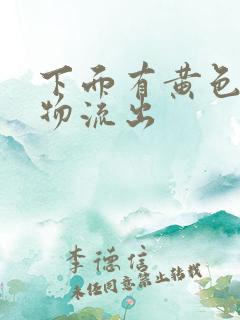 下而有黄色
物流出
李德信
未经同意禁止转载